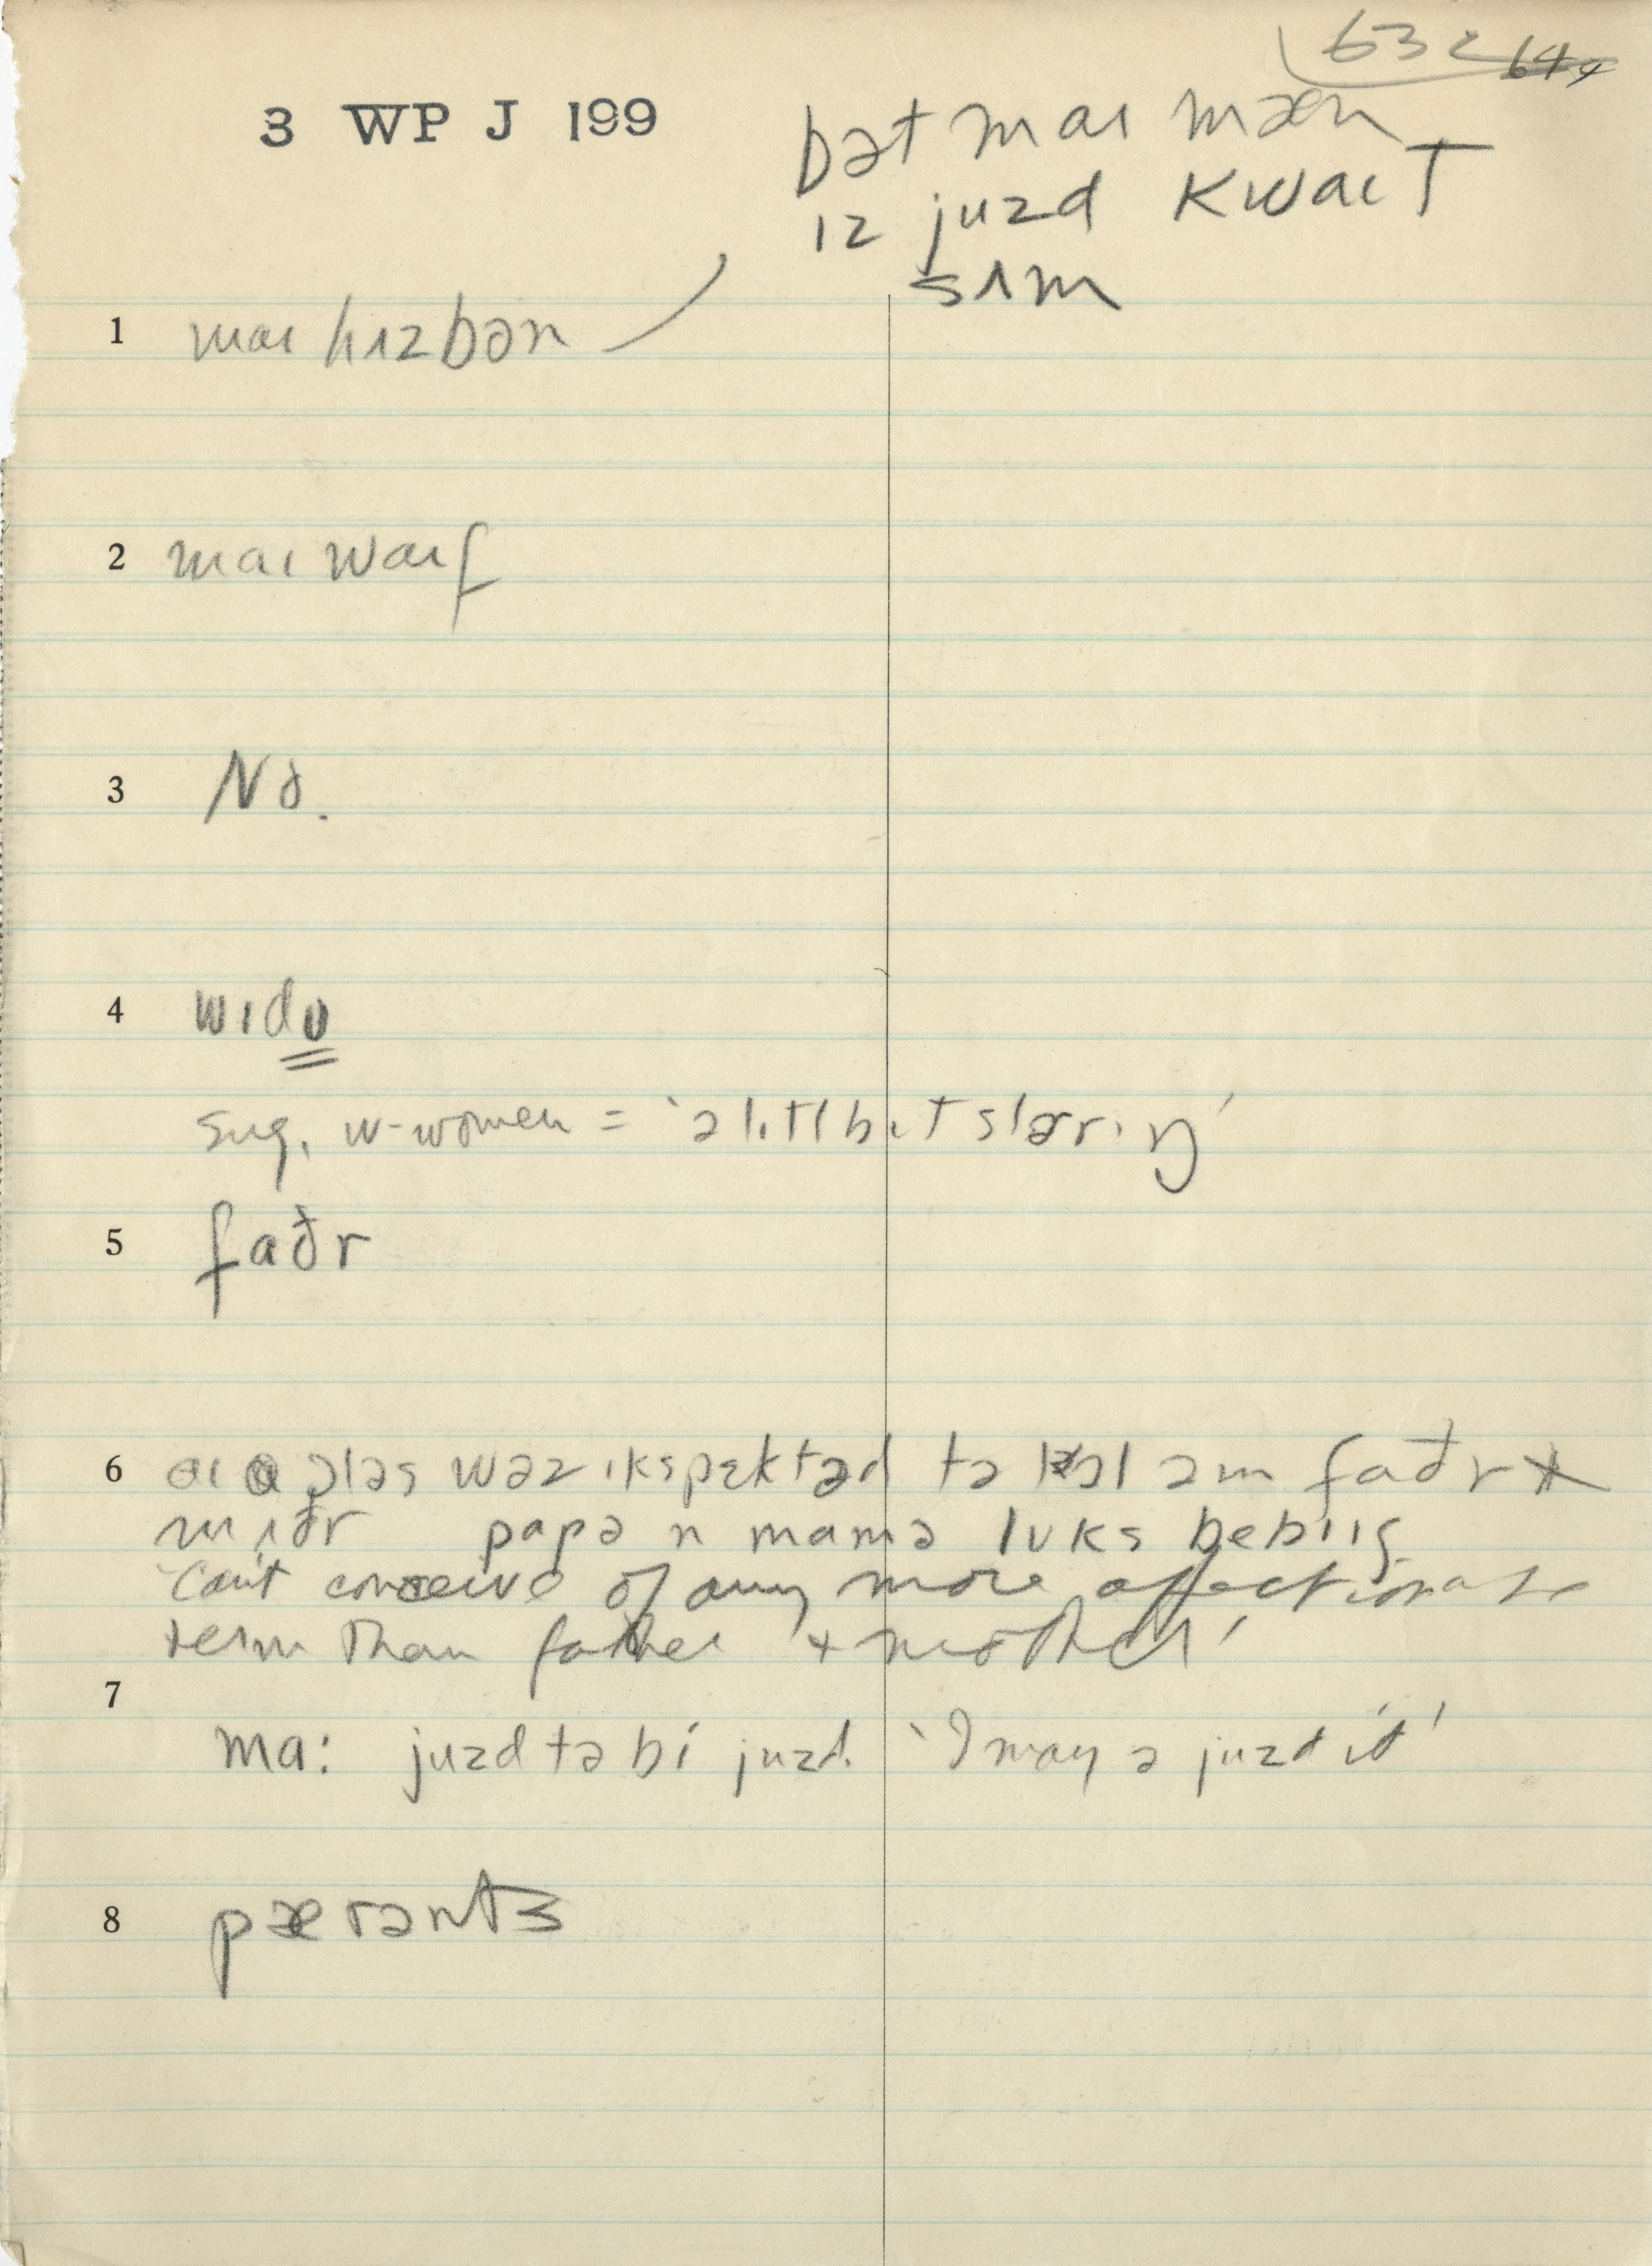 632 644
3 WP J 199
bət maɪ mæn
ɪz juzd kwaɪt
sʌm
1 maɪ hʌzbən
2 maɪ waɪf
3 No.
4 wɪdʊ
sug. w-women = 'ə lɪtl bɪt slərɪŋ'
5 faðr
6 aɪ ɔləs wəz ɪkspɛktəd tə kɔl əm faðr +
mʌðr papə n mamə lʊks bebɪɪʃ
'Can't conceive of any more affectionate
term than father + mother'
7
ma: juzd tə bi juzd. 'I may ə juzd it'
8 pærənts